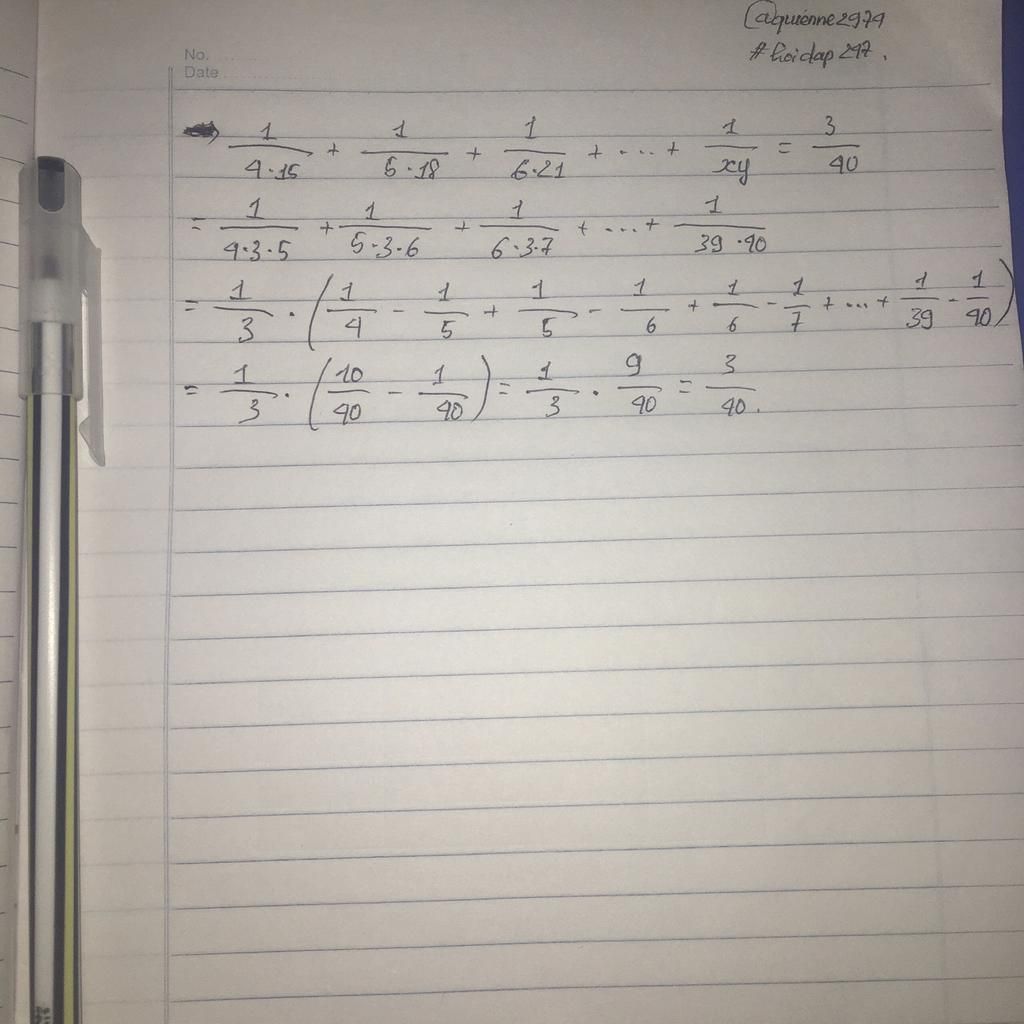 @quienne2974
#hoidap247.
No.
Date
1/(4·15) + 1/(5·18) + 1/(6·21) + ... + 1/xy = 3/40
= 1/(4·3·5) + 1/(5·3·6) + 1/(6·3·7) + ... + 1/(39·40)
= 1/3 · (1/4 - 1/5 + 1/5 - 1/6 + 1/6 - 1/7 + ... + 1/39 - 1/40)
= 1/3 · (10/40 - 1/40) = 1/3 · 9/40 = 3/40.